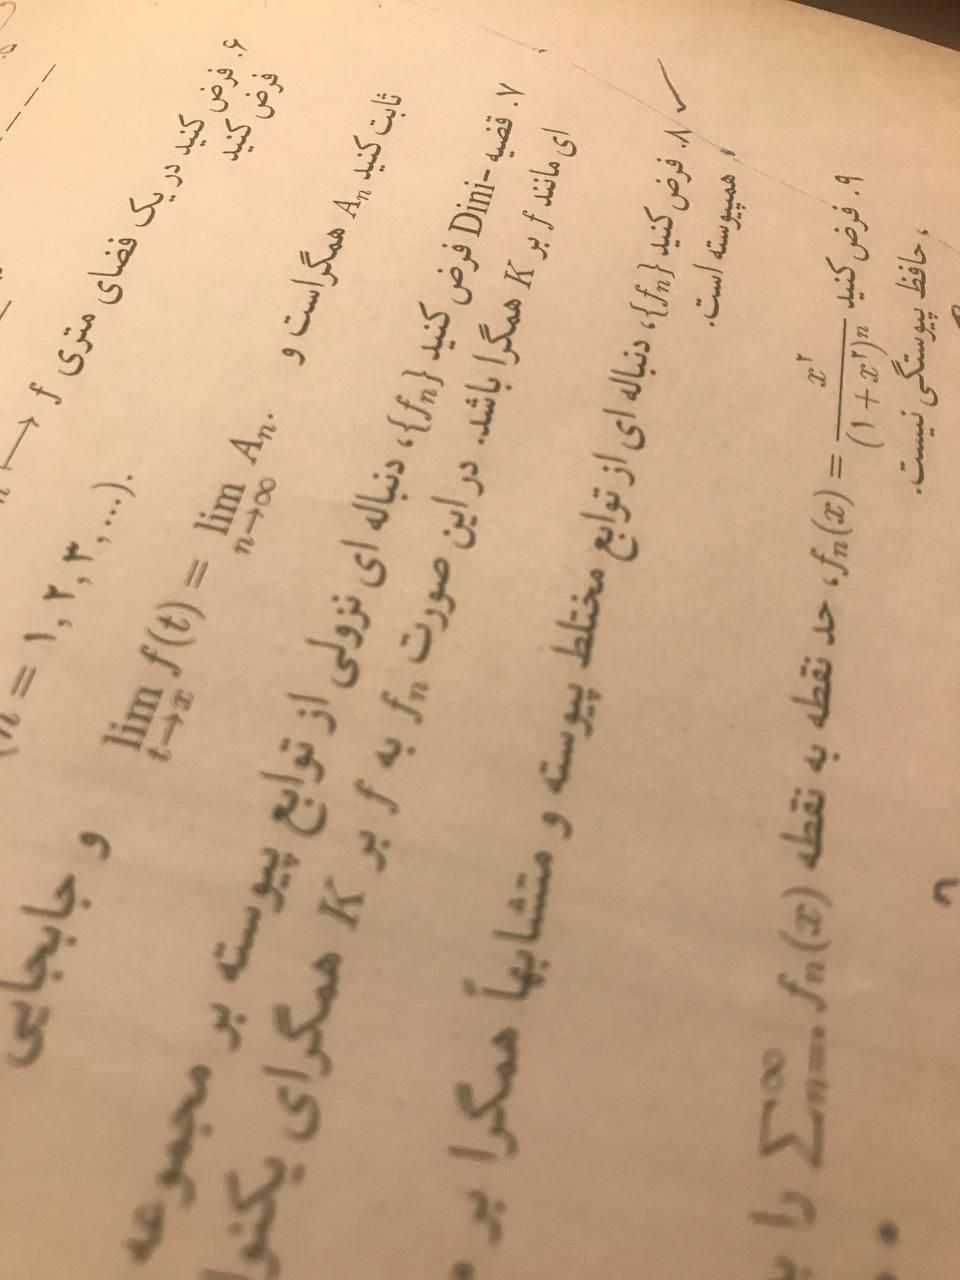 ۶. فرض کنید در یک فضای متری f →
فرض کنید
(n = ۱, ۲, ۳, ...).
ثابت کنید Aₙ همگراست و lim_{t→x} f(t) = lim_{n→∞} Aₙ.
و جابجایی
۷. قضیه -Dini فرض کنید {fₙ}، دنباله ای نزولی از توابع پیوسته بر مجموعه
ای مانند f بر K همگرا باشد. در این صورت fₙ به f بر K همگرای
۸. فرض کنید {fₙ}، دنباله ای از توابع مختلط پیوسته و متشابهاً همگرا بر
، همپیوسته است.
۹. فرض کنید fₙ(x) = x^۲/(۱ + x^۲)ⁿ، حد نقطه به نقطه ∑_{n=۰}^∞ fₙ(x) را
، حافظ پیوستگی نیست.